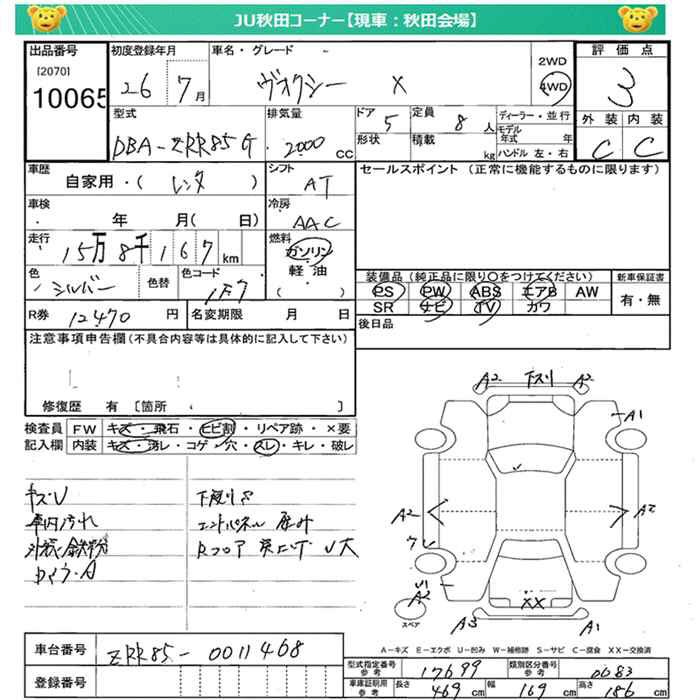 JU秋田コーナー【現車：秋田会場】
出品番号 初度登録年月 車名・グレード 2WD 4WD 評価点
[2070]
10065 26 7月 ヴォクシー X 3
型式 排気量 ドア 5 定員 8人 ディーラー・並行 外装 内装
DBA-ZRR85G 2000cc 形状 積載 kg モデル年式 年 ハンドル 左・右 C C
車歴 自家用・(レンタ) シフト AT セールスポイント（正常に機能するものに限ります）
車検 年 月(日) 冷房 AAC
走行 15万8千167km 燃料 ガソリン・軽油・( )
色 シルバー 色替 色コード 1F7 装備品（純正品に限り○をつけてください） 新車保証書
PS PW ABS エアB AW 有・無
SR ナビ TV カワ
R券 12470円 名変期限 月 日 後日品
注意事項申告欄（不具合内容等は具体的に記入して下さい）
修復歴 有〔箇所 〕
検査員 FW キズ・飛石・ヒビ割・リペア跡・×要
記入欄 内装 キズ・汚レ・コゲ・穴・スレ・キレ・破レ
キズ・U 下廻りS
車内汚れ エンドパネル
外装鉄粉 Rフロア 突上げ U大
A2 下スリ A2
A1
A2 A2
ワレ
U1
スペア A3 XX A1
A－キズ E－エクボ U－凹み W－補修跡 S－サビ C－腐食 XX－交換済
車台番号 ZRR85-0011468
型式指定番号 参考 17699 類別区分番号 参考 0083
登録番号 車庫証明用 参考 長さ 469cm 幅 169cm 高さ 186cm